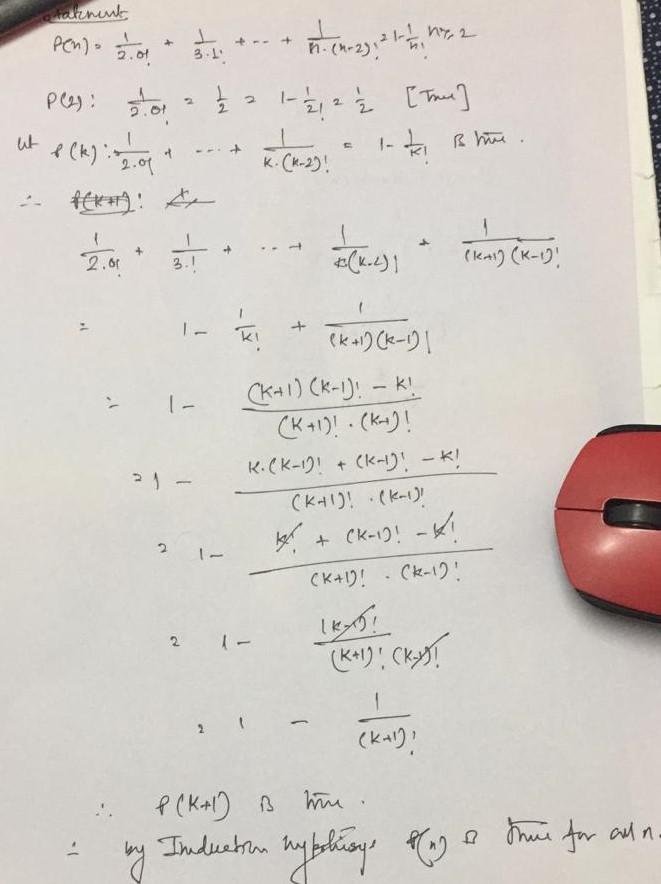 Statement
P(n) = 1/2.0! + 1/3.1! + -- + 1/n.(n-2)! = 1 - 1/n! n ≥ 2
P(2): 1/2.0! = 1/2 = 1 - 1/2! = 1/2 [True]
let P(k): 1/2.0! + ---- + 1/k.(k-2)! = 1 - 1/k! is true.
∴ P(k+1):
1/2.0! + 1/3.! + --- + 1/k(k-2)! + 1/(k+1)(k-1)!
= 1 - 1/k! + 1/(k+1)(k-1)!
= 1 - (k+1)(k-1)! - k!/(k+1)! . (k-1)!
= 1 - k.(k-1)! + (k-1)! - k!/(k+1)! . (k-1)!
= 1 - k! + (k-1)! - k!/(k+1)! . (k-1)!
= 1 - (k-1)!/(k+1)! (k-1)!
= 1 - 1/(k+1)!
∴ P(k+1) is true.
∴ by Induction hypothesys P(n) is true for all n.